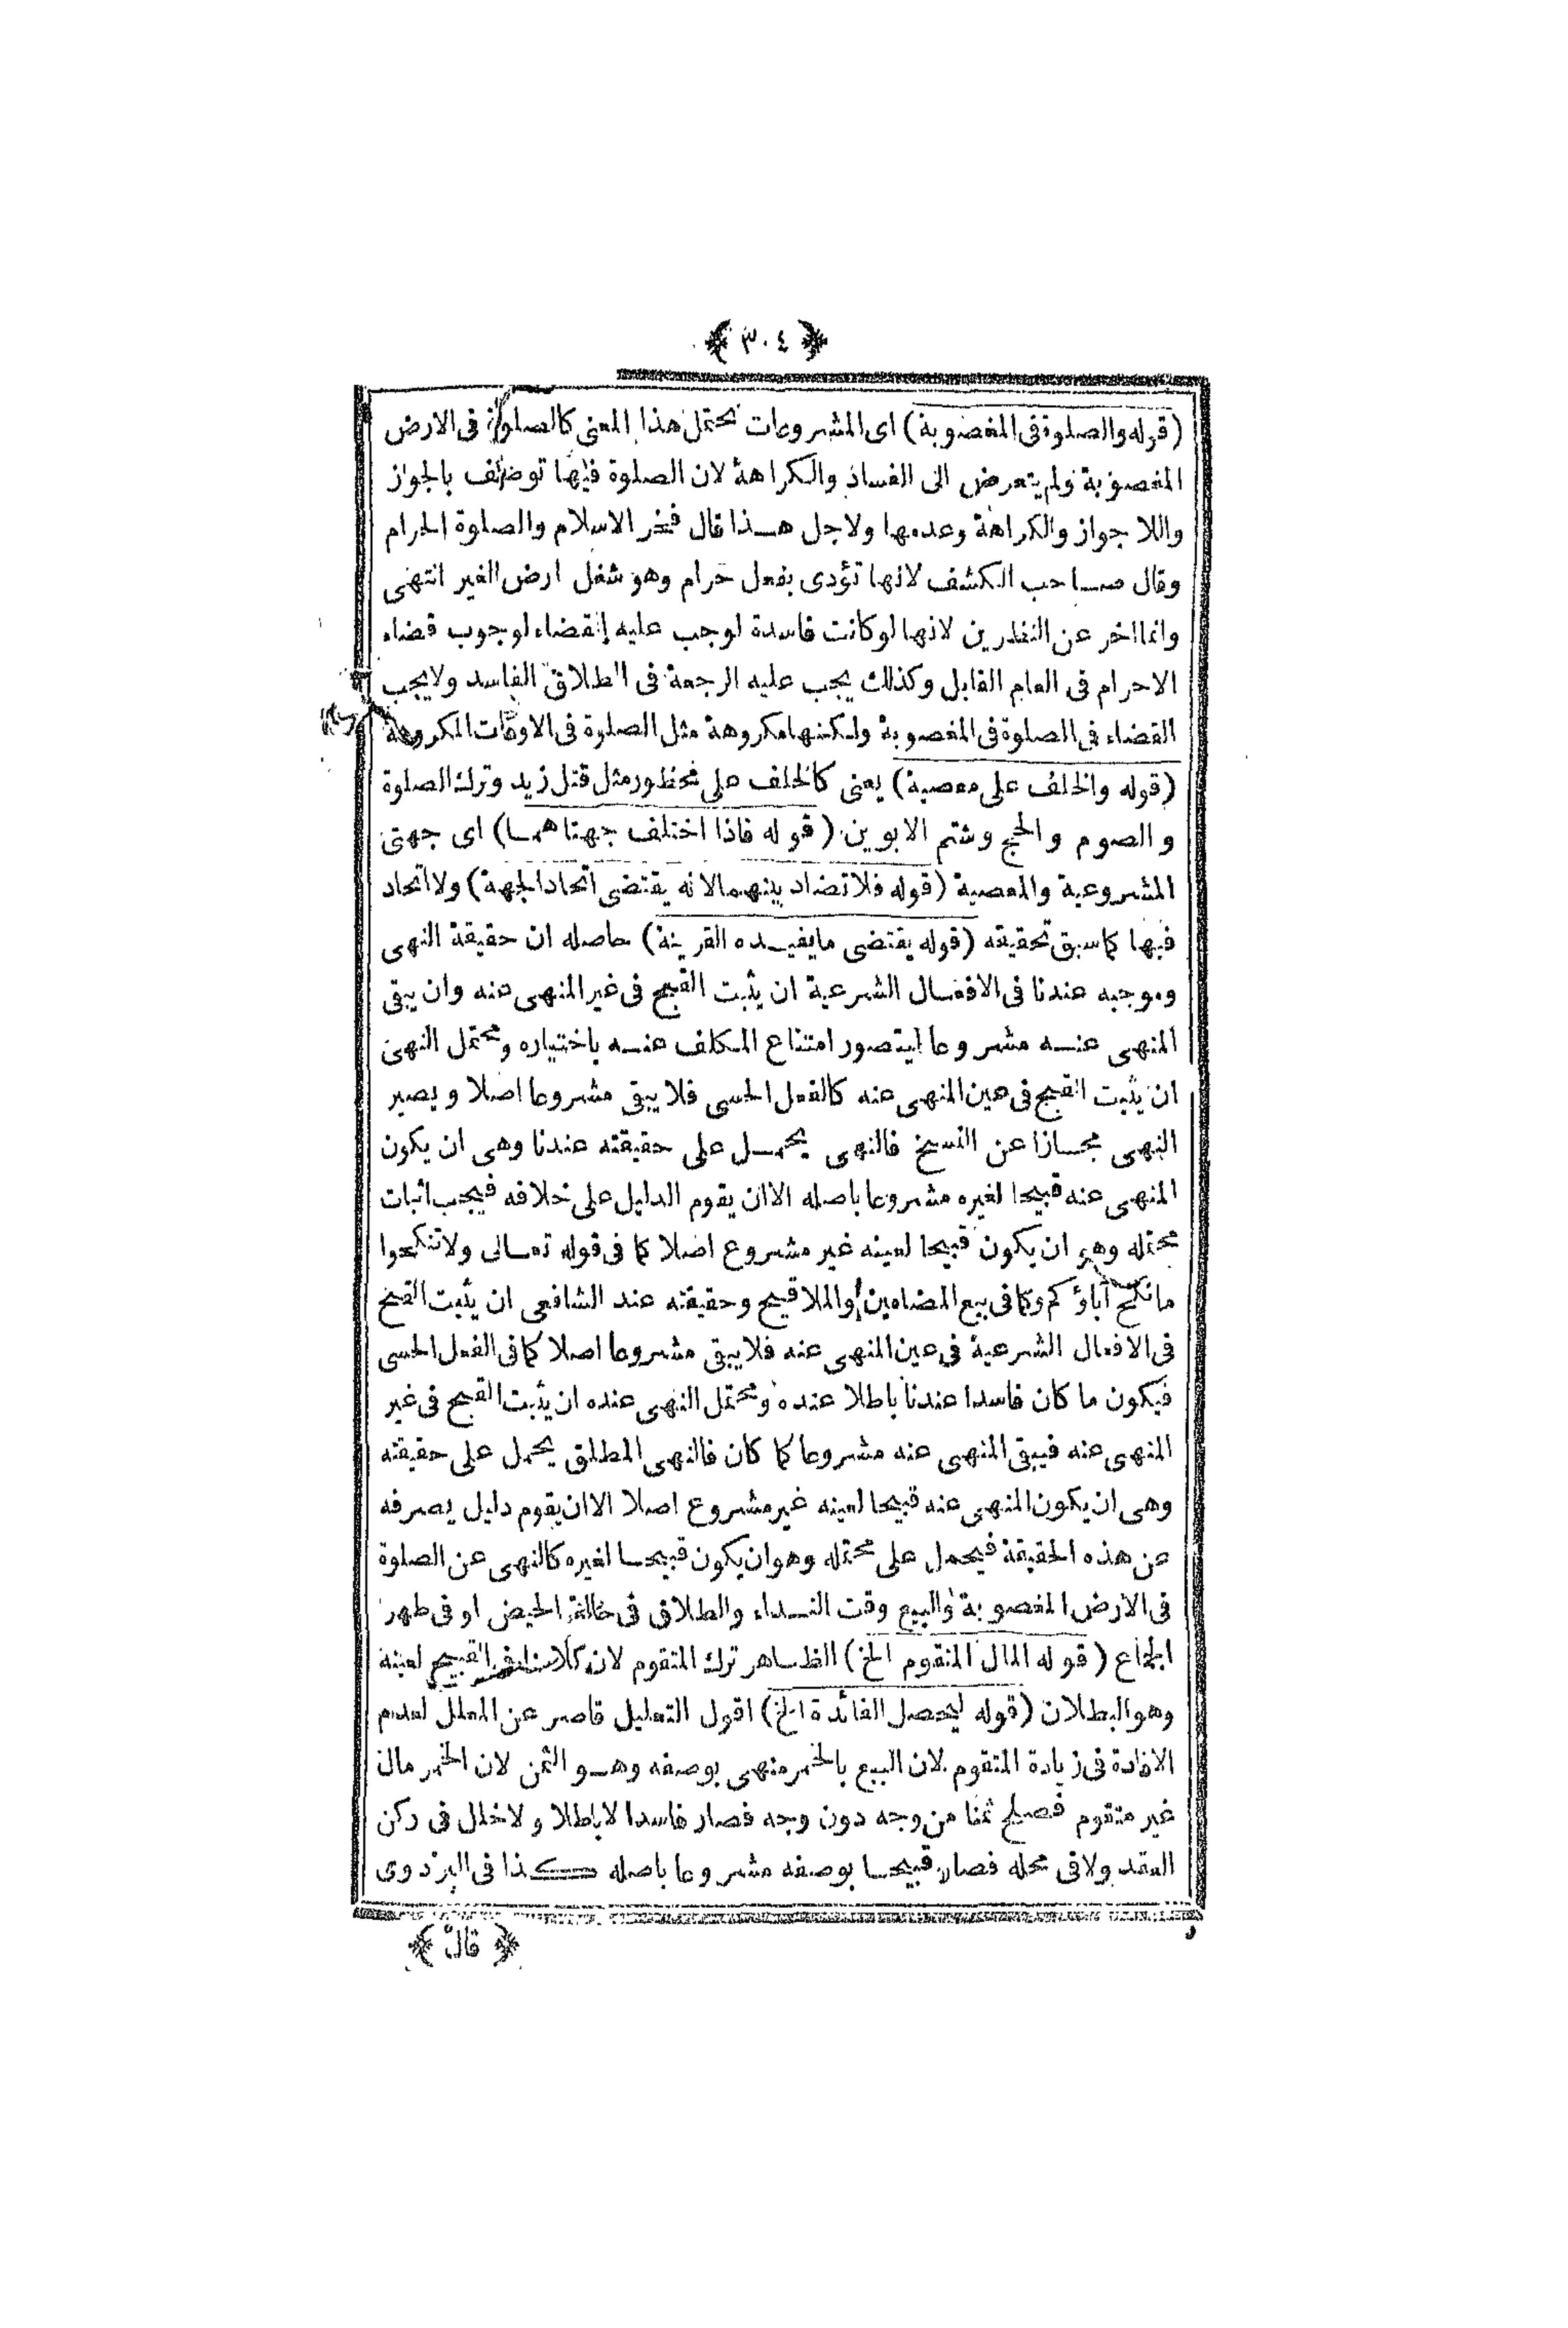 ﴿ ٣٠٤ ﴾
(قوله والصلوة فى المغصوبة) اى المشروعات تحتمل هذا المعنى كالصلوة فى الارض
المغصوبة ولم يتعرض الى الفساد والكراهة لان الصلوة فيها توصف بالجواز
واللا جواز والكراهة وعدمها ولاجل هذا قال فخر الاسلام والصلوة الحرام
وقال صاحب الكشف لانها تؤدى بفعل حرام وهو شغل ارض الغير انتهى
وانما اخر عن النظرين لانها لو كانت فاسدة لوجب عليه القضاء لوجوب قضاء
الاحرام فى العام القابل وكذلك يجب عليه الرجعة فى الطلاق الفاسد ولا يجب
القضاء فى الصلوة فى المغصوبة ولكنها مكروهة مثل الصلوة فى الاوقات المكروهة
(قوله والحلف على معصية) يعنى كالحلف على محظور مثل قتل زيد وترك الصلوة
و الصوم و الحج وشتم الابوين (قوله فاذا اختلف جهتاهما) اى جهتى
المشروعية والمعصية (قوله فلا تضاد بينهما لانه يقتضى اتحاد الجهة) ولا اتحاد
فيها كما سبق تحقيقه (قوله يقتضى ما يفيده القرينة) حاصله ان حقيقة النهى
وموجبه عندنا فى الافعال الشرعية ان يثبت القبح فى غير المنهى عنه وان يبقى
المنهى عنه مشروعا ليتصور امتناع المكلف عنه باختياره ومحتمل النهى
ان يثبت القبح فى عين المنهى عنه كالفعل الحسى فلا يبقى مشروعا اصلا و يصير
النهى مجازا عن النسخ فالنهى يحمل على حقيقته عندنا وهى ان يكون
المنهى عنه قبيحا لغيره مشروعا باصله الا ان يقوم الدليل على خلافه فيجب اثبات
محتمله وهو ان يكون قبيحا لعينه غير مشروع اصلا كما فى قوله تعالى ولا تنكحوا
ما نكح آباؤكم وكما فى بيع المضامين والملاقيح وحقيقته عند الشافعى ان يثبت القبح
فى الافعال الشرعية فى عين المنهى عنه فلا يبقى مشروعا اصلا كما فى الفعل الحسى
فيكون ما كان فاسدا عندنا باطلا عنده ومحتمل النهى عنده ان يثبت القبح فى غير
المنهى عنه فيبقى المنهى عنه مشروعا كما كان فالنهى المطلق يحمل على حقيقته
وهى ان يكون المنهى عنه قبيحا لعينه غير مشروع اصلا الا ان يقوم دليل يصرفه
عن هذه الحقيقة فيحمل على محتمله وهو ان يكون قبيحا لغيره كالنهى عن الصلوة
فى الارض المغصوبة والبيع وقت النداء والطلاق فى حالة الحيض او فى طهر
الجماع (قوله المال المتقوم الخ) الظاهر ترك المتقوم لان كلامنا فى القبيح لعينه
وهو البطلان (قوله ليحصل الفائدة الخ) اقول التعليل قاصر عن المعلل لعدم
الافادة فى زيادة المتقوم لان البيع بالخمر منهى بوصفه وهو الثمن لان الخمر مال
غير متقوم فصلح ثمنا من وجه دون وجه فصار فاسدا لا باطلا و لا خلل فى ركن
العقد ولا فى محله فصار قبيحا بوصفه مشروعا باصله كذا فى البزدوى
﴿ قال ﴾